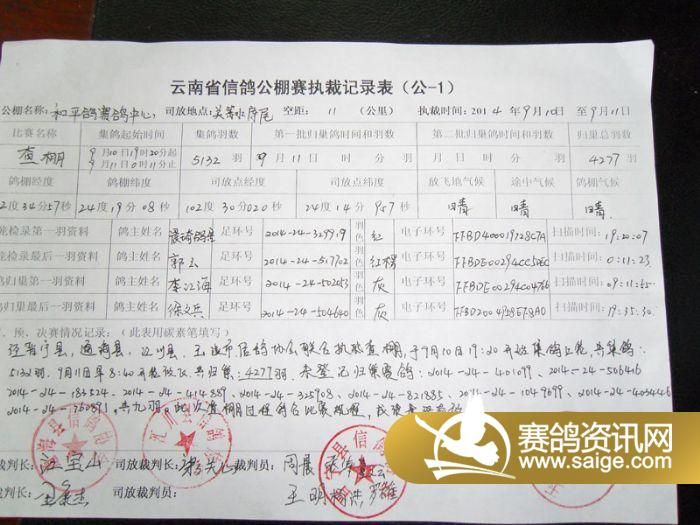 云南省信鸽公棚赛执裁记录表（公-1）
公棚名称：和平鸽赛鸽中心 司放地点：关等水库尾 空距：11（公里） 执裁时间：2014年9月10日至9月11日
比赛名称 集鸽起始时间 集鸽羽数 第一批归巢鸽时间和羽数 第二批归巢鸽时间和羽数 归巢总羽数
查棚 9月10日19时20分起 9月11日0时11分止 5132羽 9月11日 时 分 羽 月 日 时 分 羽 4277羽
鸽棚经度 鸽棚纬度 司放点经度 司放点纬度 放飞地气候 途中气候 鸽棚气候
2度34分57秒 24度19分08秒 102度30分020秒 24度14分957秒 晴 晴 晴
检录第一羽资料 鸽主姓名 足环号 2014-24-329919 羽色 红 电子环号 FFBD400019728C7A 扫描时间：19:20:07
检录最后一羽资料 鸽主姓名 郭云 足环号 2014-24-517702 红楞 电子环号 FFBDE00294CC5DEC 扫描时间：0:11:23
归巢第一羽资料 鸽主姓名 李江海 足环号 2014-24-502053 羽色 灰 电子环号 FFBDE00294C04766 扫描时间：09:11:55
归巢最后一羽资料 鸽主姓名 徐文兵 足环号 2014-24-504640 灰 电子环号 FFBD2004958F8A0 扫描时间：19:35:30
预、决赛情况记录：（此表用碳素笔填写）
经晋宁县，通海县，江川县，玉溪市信鸽协会联合执裁查棚，于9月10日19:20开始集鸽上笼，共集鸽：
5132羽，9月11日早8:40开笼放飞，共归巢：4277羽。未登记归巢赛鸽：2014-24-401099、2014-24-506416
2014-24-183524、2014-24-414889、2014-24-325908、2014-24-821885、2014-24-1049099、2014-24-403446
2014-24-750891，共九羽。此次查棚过程符合比赛规程，
裁判长：江宝山 司放裁判长： 裁判员：周晨
裁判长： 司放裁判： 王明 罗雄
赛鸽资讯网
www.saige.com